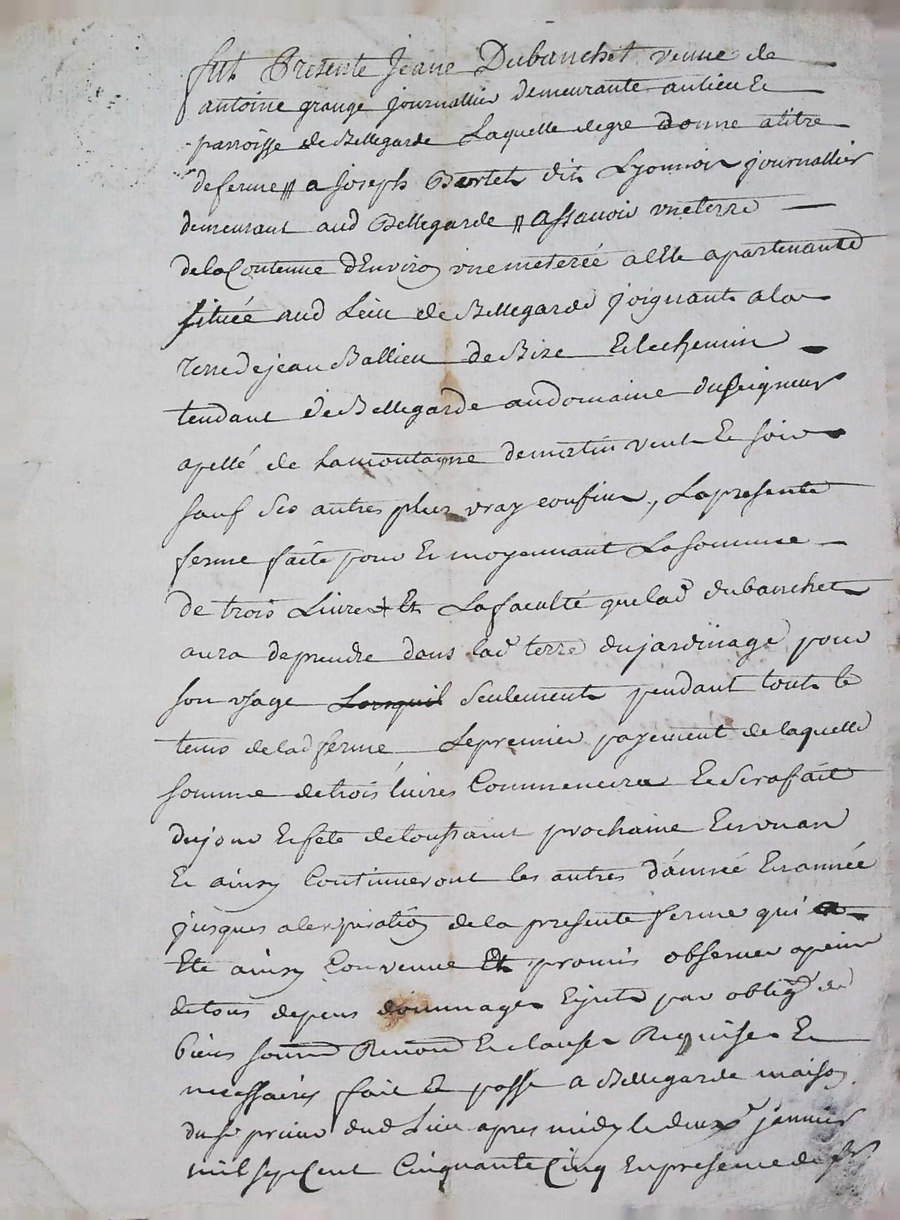 fut Presente Jeane Dubanchet veuve de
antoine grange journallier demeurante au lieu Et
parroisse de Bellegarde Laquelle de gre donne a titre
de ferme // a joseph Bertet dit Lyonnois journallier
demeurant aud Bellegarde // assavoir une terre
de la Contenue d'Environ une meterée a Elle apartenante
située aud Lieu de Bellegarde joignant a la
terre de jean Ballieu de Bize Et le chemin
tendant de Bellegarde au domaine du seigneur
apellé de Lamontagne de matin vent Et soir
sauf ses autres plus vray confins, La presente
ferme faite pour Et moyennant La somme
de trois Livres Et La faculté que lad dubanchet
aura de prendre dans lad terre du jardinage pour
son usage Lorsquil seulement pendant tout le
tems de lad ferme Le premier payement de laquelle
somme de trois livres Commencera Et sera fait
du jour Et fete de toussaint prochaine En un an
Et ainsy Continueront les autres d'année En année
jusques a l'expiration de la presente ferme qui a
Ete ainsy Convenue Et promis observer a peine
de tous depens dommages Ejuts par oblig de
biens soumd Renond Et clauses Requises Et
necessaires fait Et passé a Bellegarde maison
du sr prieur dud Lieu apres midy le deux janvier
mil sept Cent Cinquante Cinq En presence de